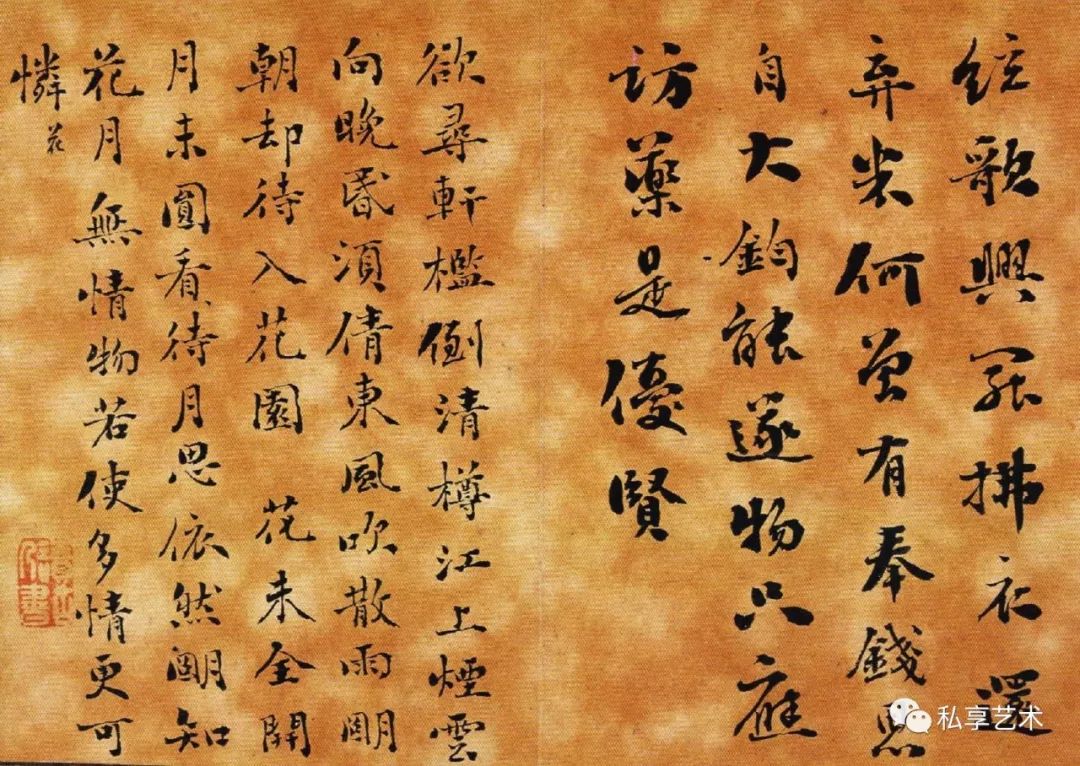 絃歌興罷拂衣還
弃米何曾有奉錢思
自大鈞能遂物只應
訪藥是優賢
欲尋軒檻倒清樽江上煙雲
向晚昏須倩東風吹散雨明
朝却待入花園 花未全開
月未圓看花待月思依然明知
花月無情物若使多情更可
憐 花
私享艺术